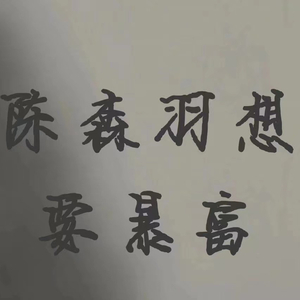 陈森羽想
要暴富